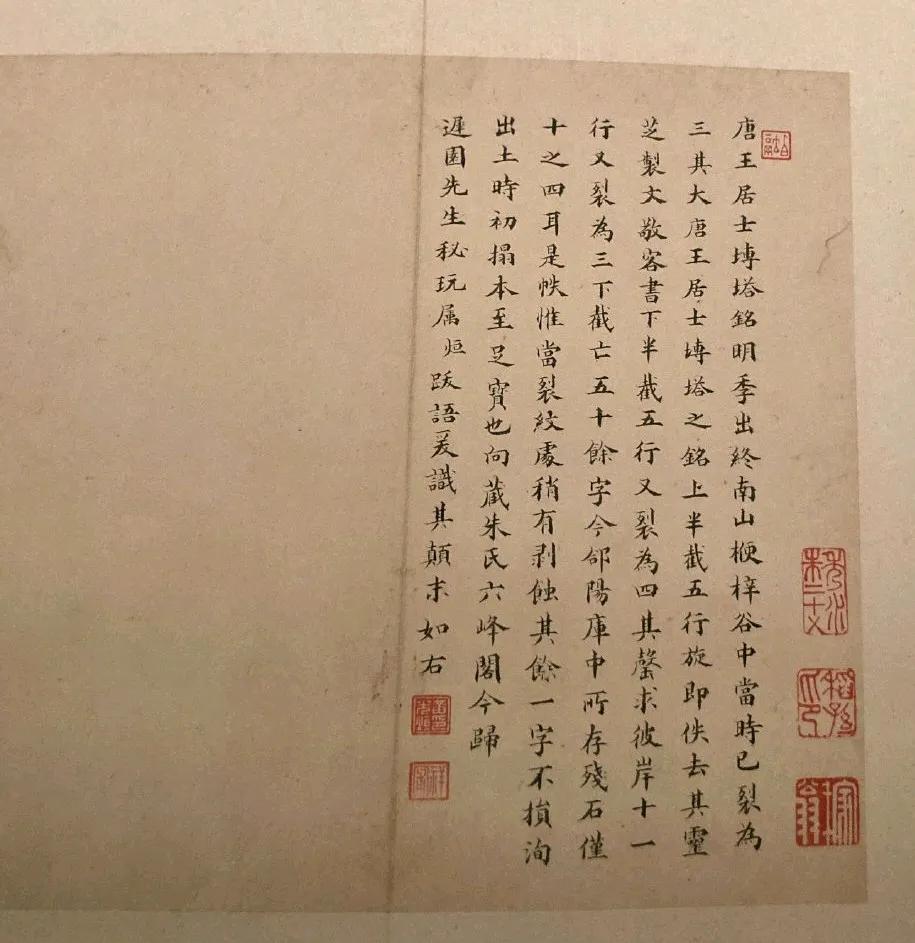 唐王居士塼塔銘明季出終南山楩梓谷中當時已裂為
三其大唐王居士塼塔之銘上半截五行旋即佚去其靈
芝製文敬客書下半截五行又裂為四其罄求彼岸十一
行又裂為三下截亡五十餘字今郃陽庫中所存殘石僅
十之四耳是帙惟當裂紋處稍有剥蝕其餘一字不損洵
出土時初搨本至足寶也向藏朱氏六峰閣今歸
遲園先生秘玩属烜跋語爰識其顛末如右